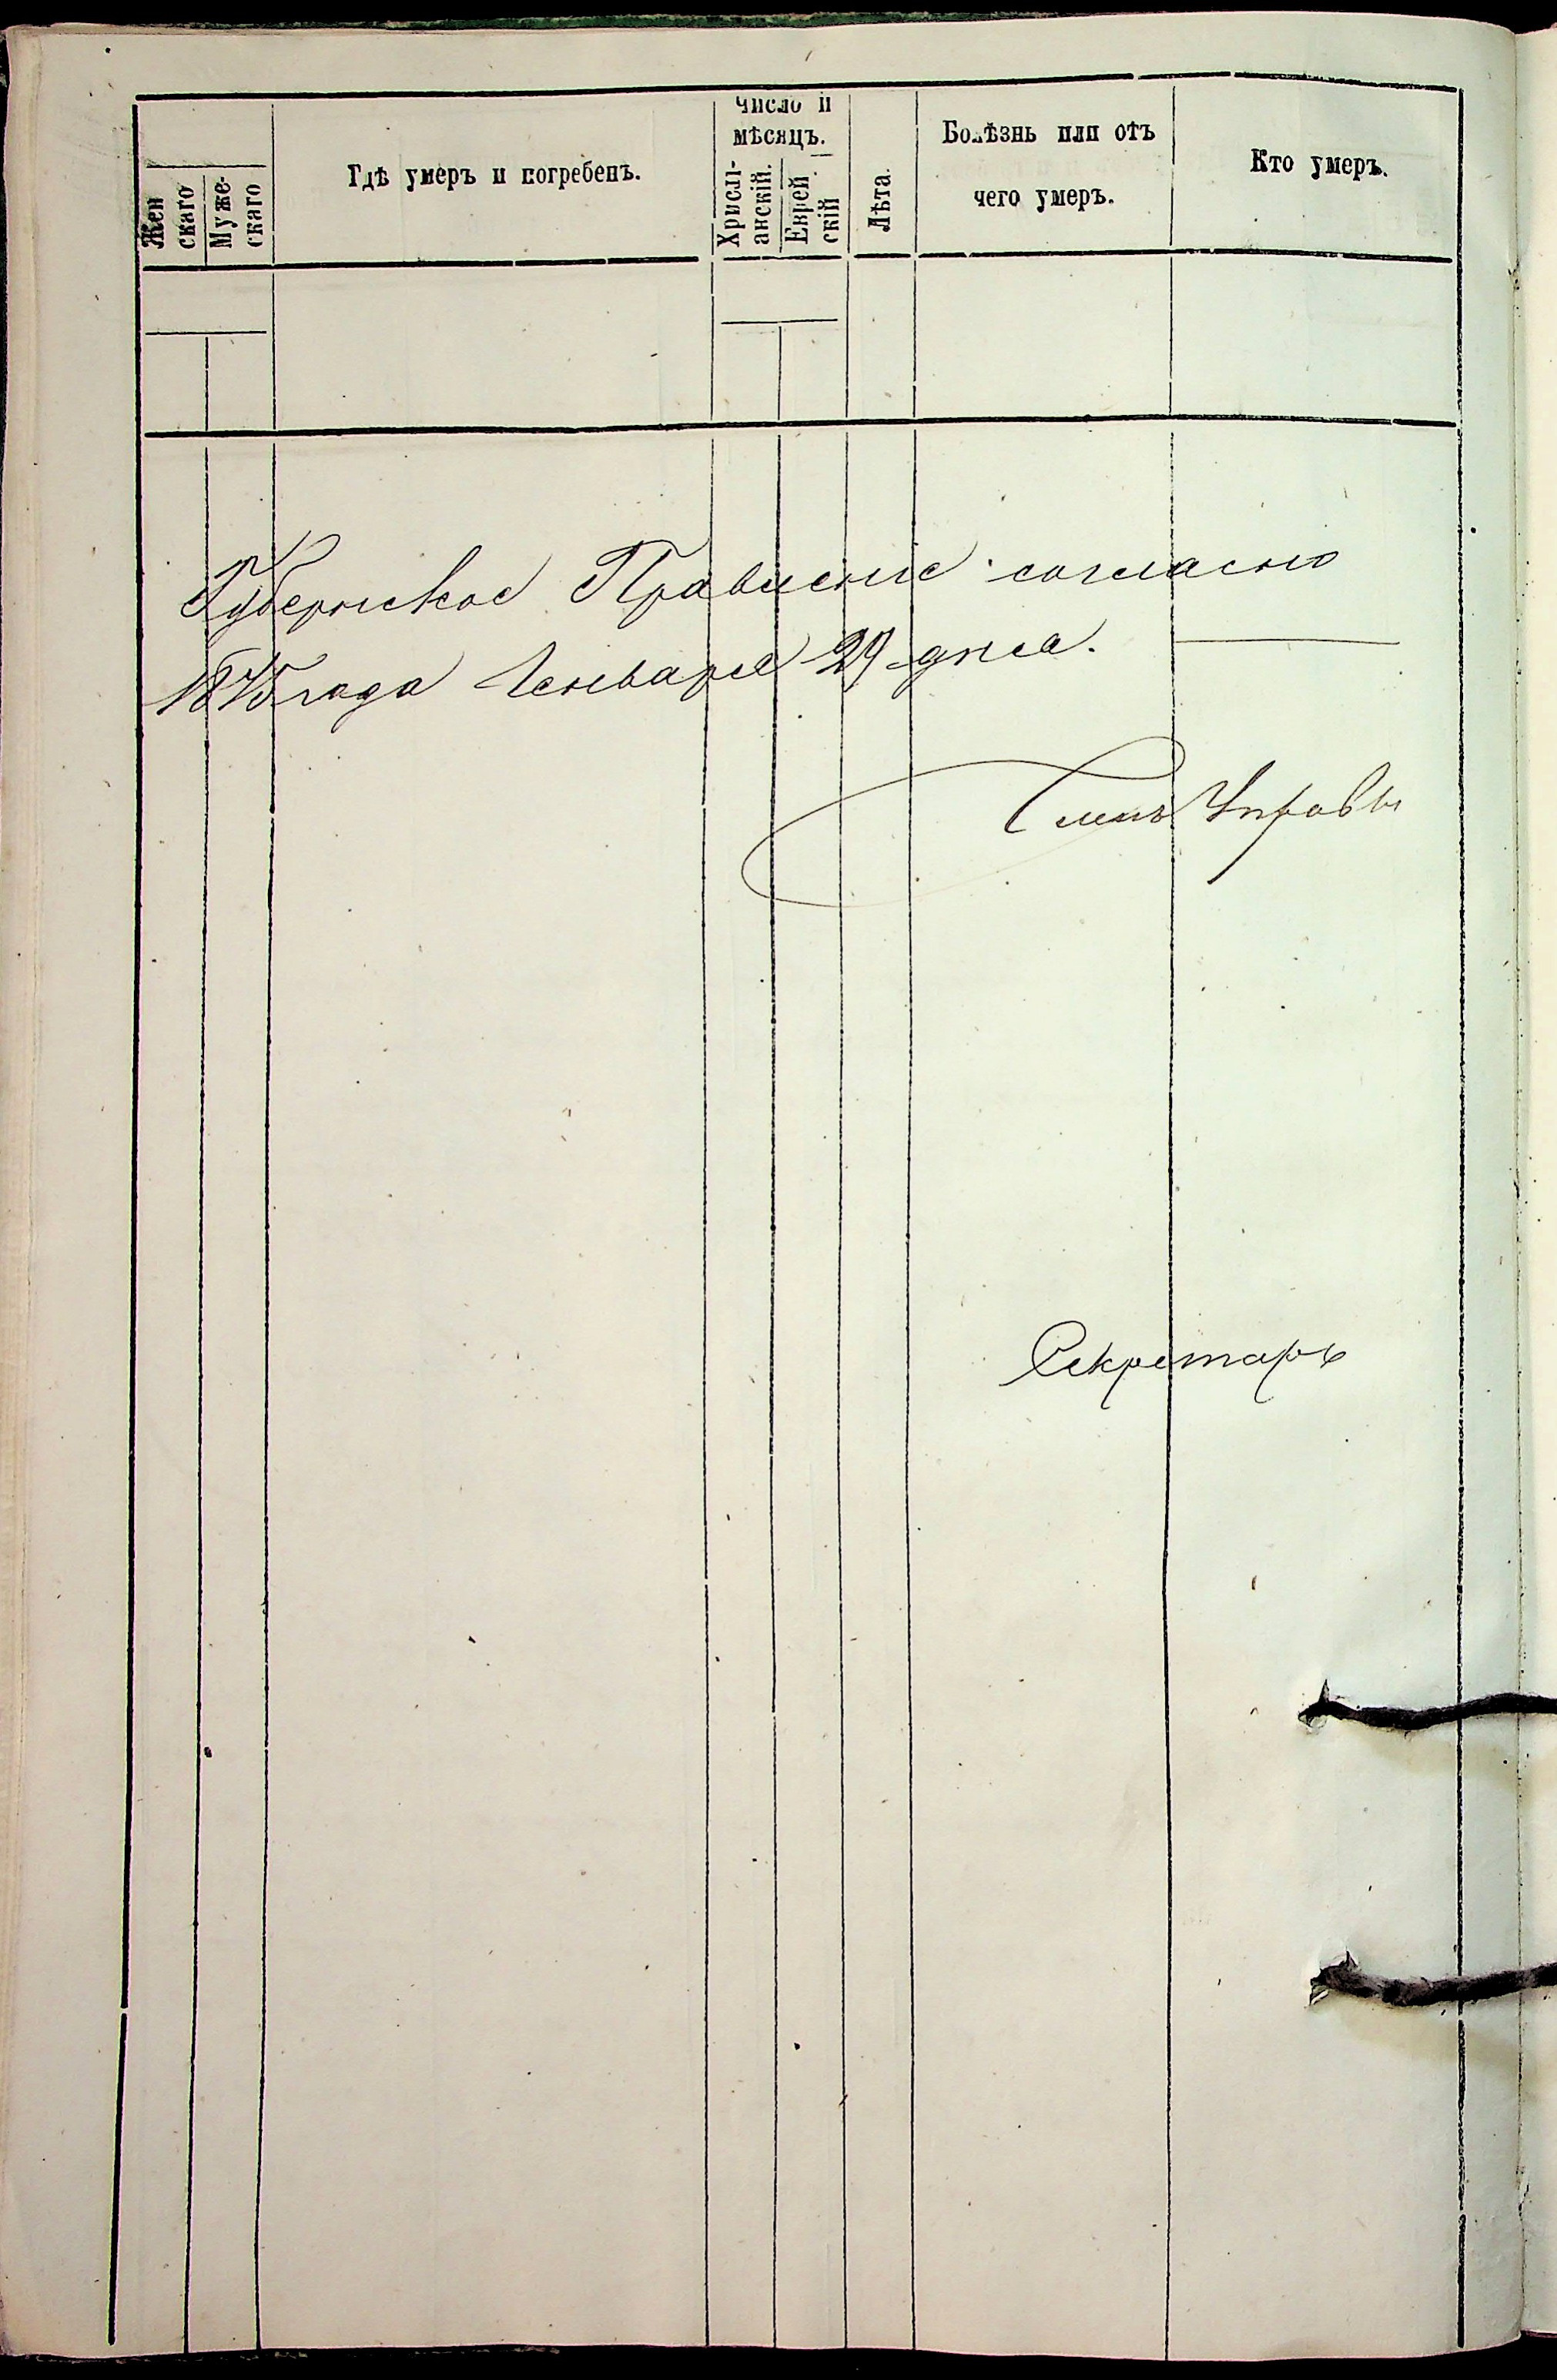 Жен
скаго
Муже-
скаго
Гдѣ умеръ и погребенъ.
Число и
мѣсяцъ.
Христі-
анскій.
Еврей
скій
Лѣта.
Болѣзнь или отъ
чего умеръ.
Кто умеръ.
Губернское Правленіе согласно
1875 года Января 29 дня.
Членъ Управы
Секретарь